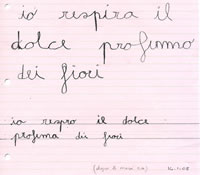 io respira il
dolce profumo
dei fiori
io respro il dolce
profuma dis fiori